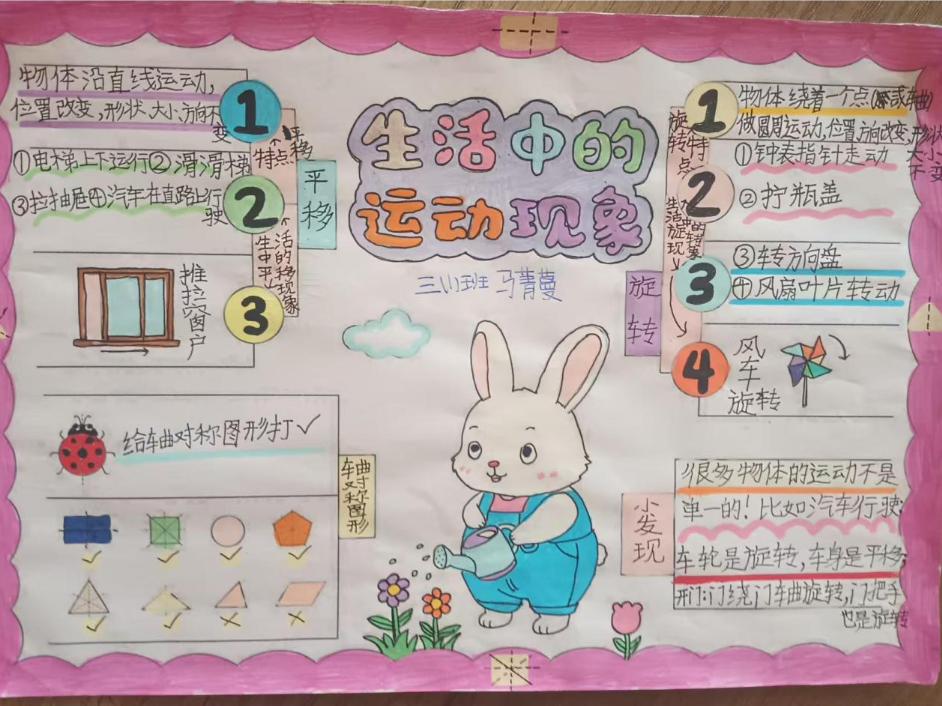 生活中的
运动现象
三(1)班 马菁蔓
物体沿直线运动,
位置改变,形状、大小、方向不
变
1
平移
特点
①电梯上下运行②滑滑梯
③拉抽屉④汽车在直路上行
驶
2
平移
生活中的平移现象
推拉窗户
3
1
物体绕着一个点(或轴)
做圆周运动,位置、方向改变,形状
大小
不变
旋转特点
①钟表指针走动
2
②拧瓶盖
生活中的旋转现象
3
③转方向盘
④风扇叶片转动
旋转
4
风车
旋转
给轴对称图形打✓
轴对称图形
✓ ✓ ✓ ✓
✓ ✓ × ×
小发现
很多物体的运动不是
单一的!比如:汽车行驶;
车轮是旋转,车身是平移;
开门:门绕门轴旋转,门把手
也是旋转